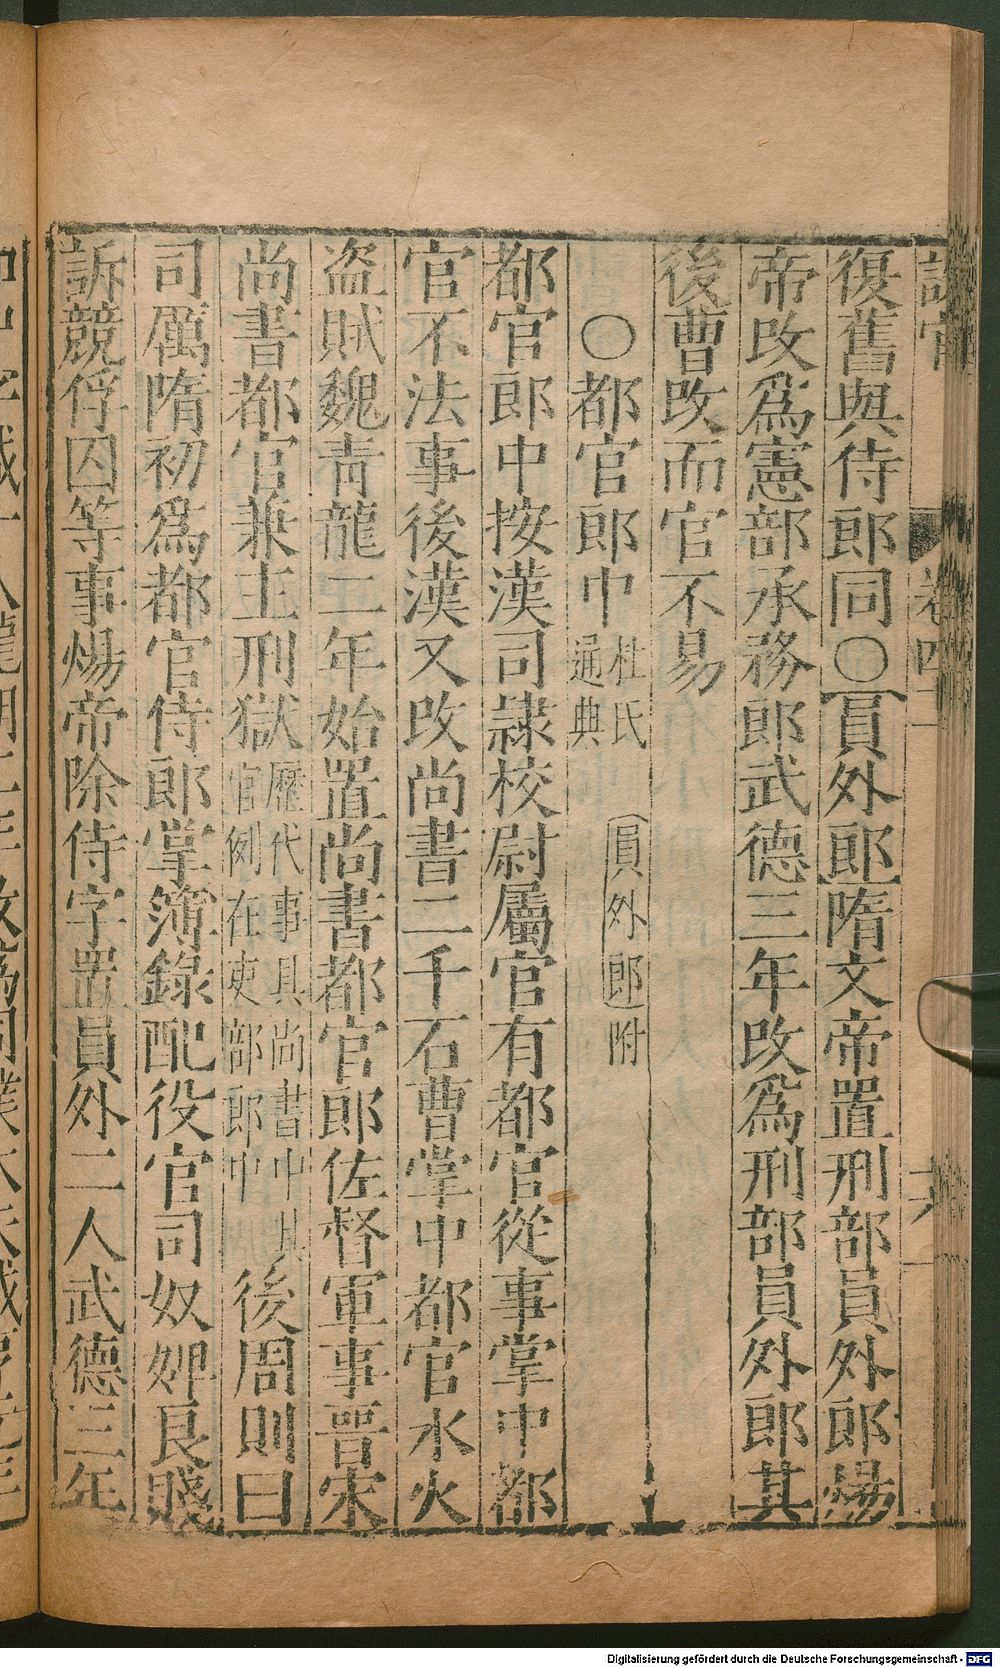 復舊與侍郎同○員外郎隋文帝置刑部員外郎煬
帝改爲憲部承務郎武德三年改爲刑部員外郎其
後曹改而官不易
○都官郎中杜氏通典 員外郎附
都官郎中按漢司隸校尉屬官有都官從事掌中都
官不法事後漢又改尚書二千石曹掌中都官水火
盜賊魏青龍二年始置尚書都官郎佐督軍事晋宋
尚書都官兼主刑獄歷代事具尚書中其官例在吏部郎中後周則曰
司厲隋初爲都官侍郎掌簿錄配役官司奴婢良賤
訴競俘囚等事煬帝除侍字置員外二人武德三年
卷四十二
Digitalisierung gefördert durch die Deutsche Forschungsgemeinschaft - DFG